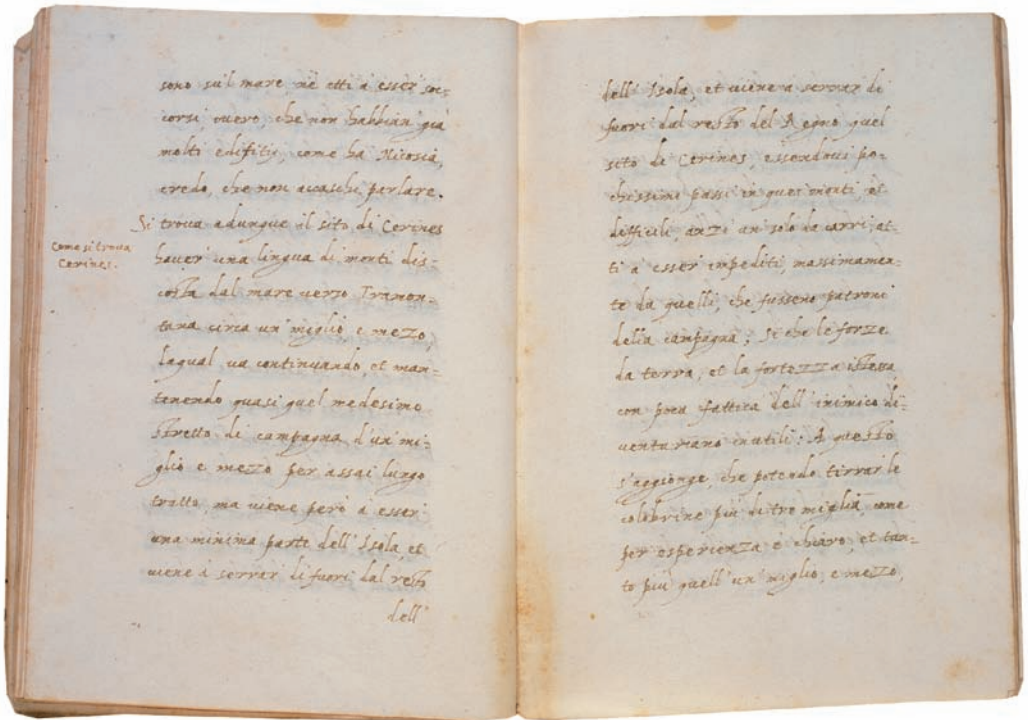 sono sul mare nè atti à esser soc=
corsi, overo, che non habbian già
molti edifitij, come ha Nicosia,
credo, che non accaschi parlare.
Si trova adunque il sito di Cerines
Come si trova
Cerines.
haver una lingua di monti dis=
costa dal mare verso Tramon=
tana circa un' miglio, e mezo,
laqual va continuando, et man=
tenendo quasi quel medesimo
stretto di campagna d'un mi=
glio e mezo per assai lungo
tratto, ma viene però à esser
una minima parte dell' Isola, et
viene à serrar di fuori dal resto
dell'
dell' Isola, et viene à serrar di
fuori dal resto del Regno quel
sito di Cerines, essendovi po=
chissimi passi in quei monti, et
difficili, anzi un solo da carri, at=
ti à esser impediti massimamen=
te da quelli, che fussero patroni
della campagna; Si che le forze
da terra, et la fortezza istessa
con poca fattica dell' inimico di=
ventariano inutili: A questo
s'aggionge, che potendo tirrar le
colobrine più di tre miglia, come
per esperienza è chiaro, et tan=
to più quell' un' miglio, e mezo,